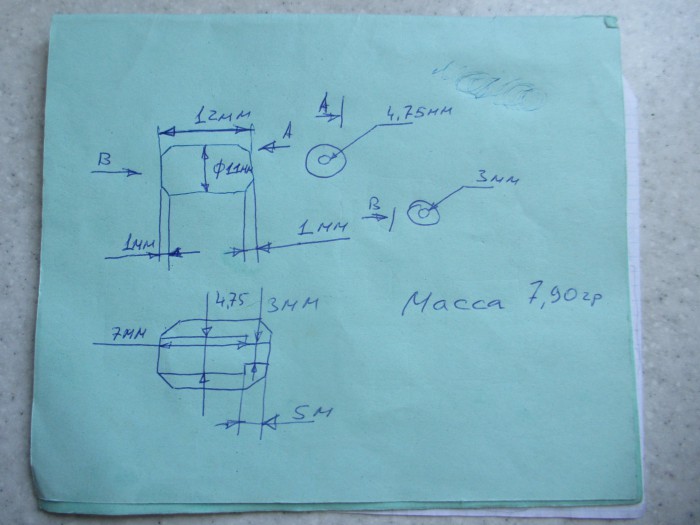 12мм
A
4,75мм
A
B
ϕ11мм
3мм
B
1мм
1мм
4,75
3мм
Масса 7,90гр
7мм
5м